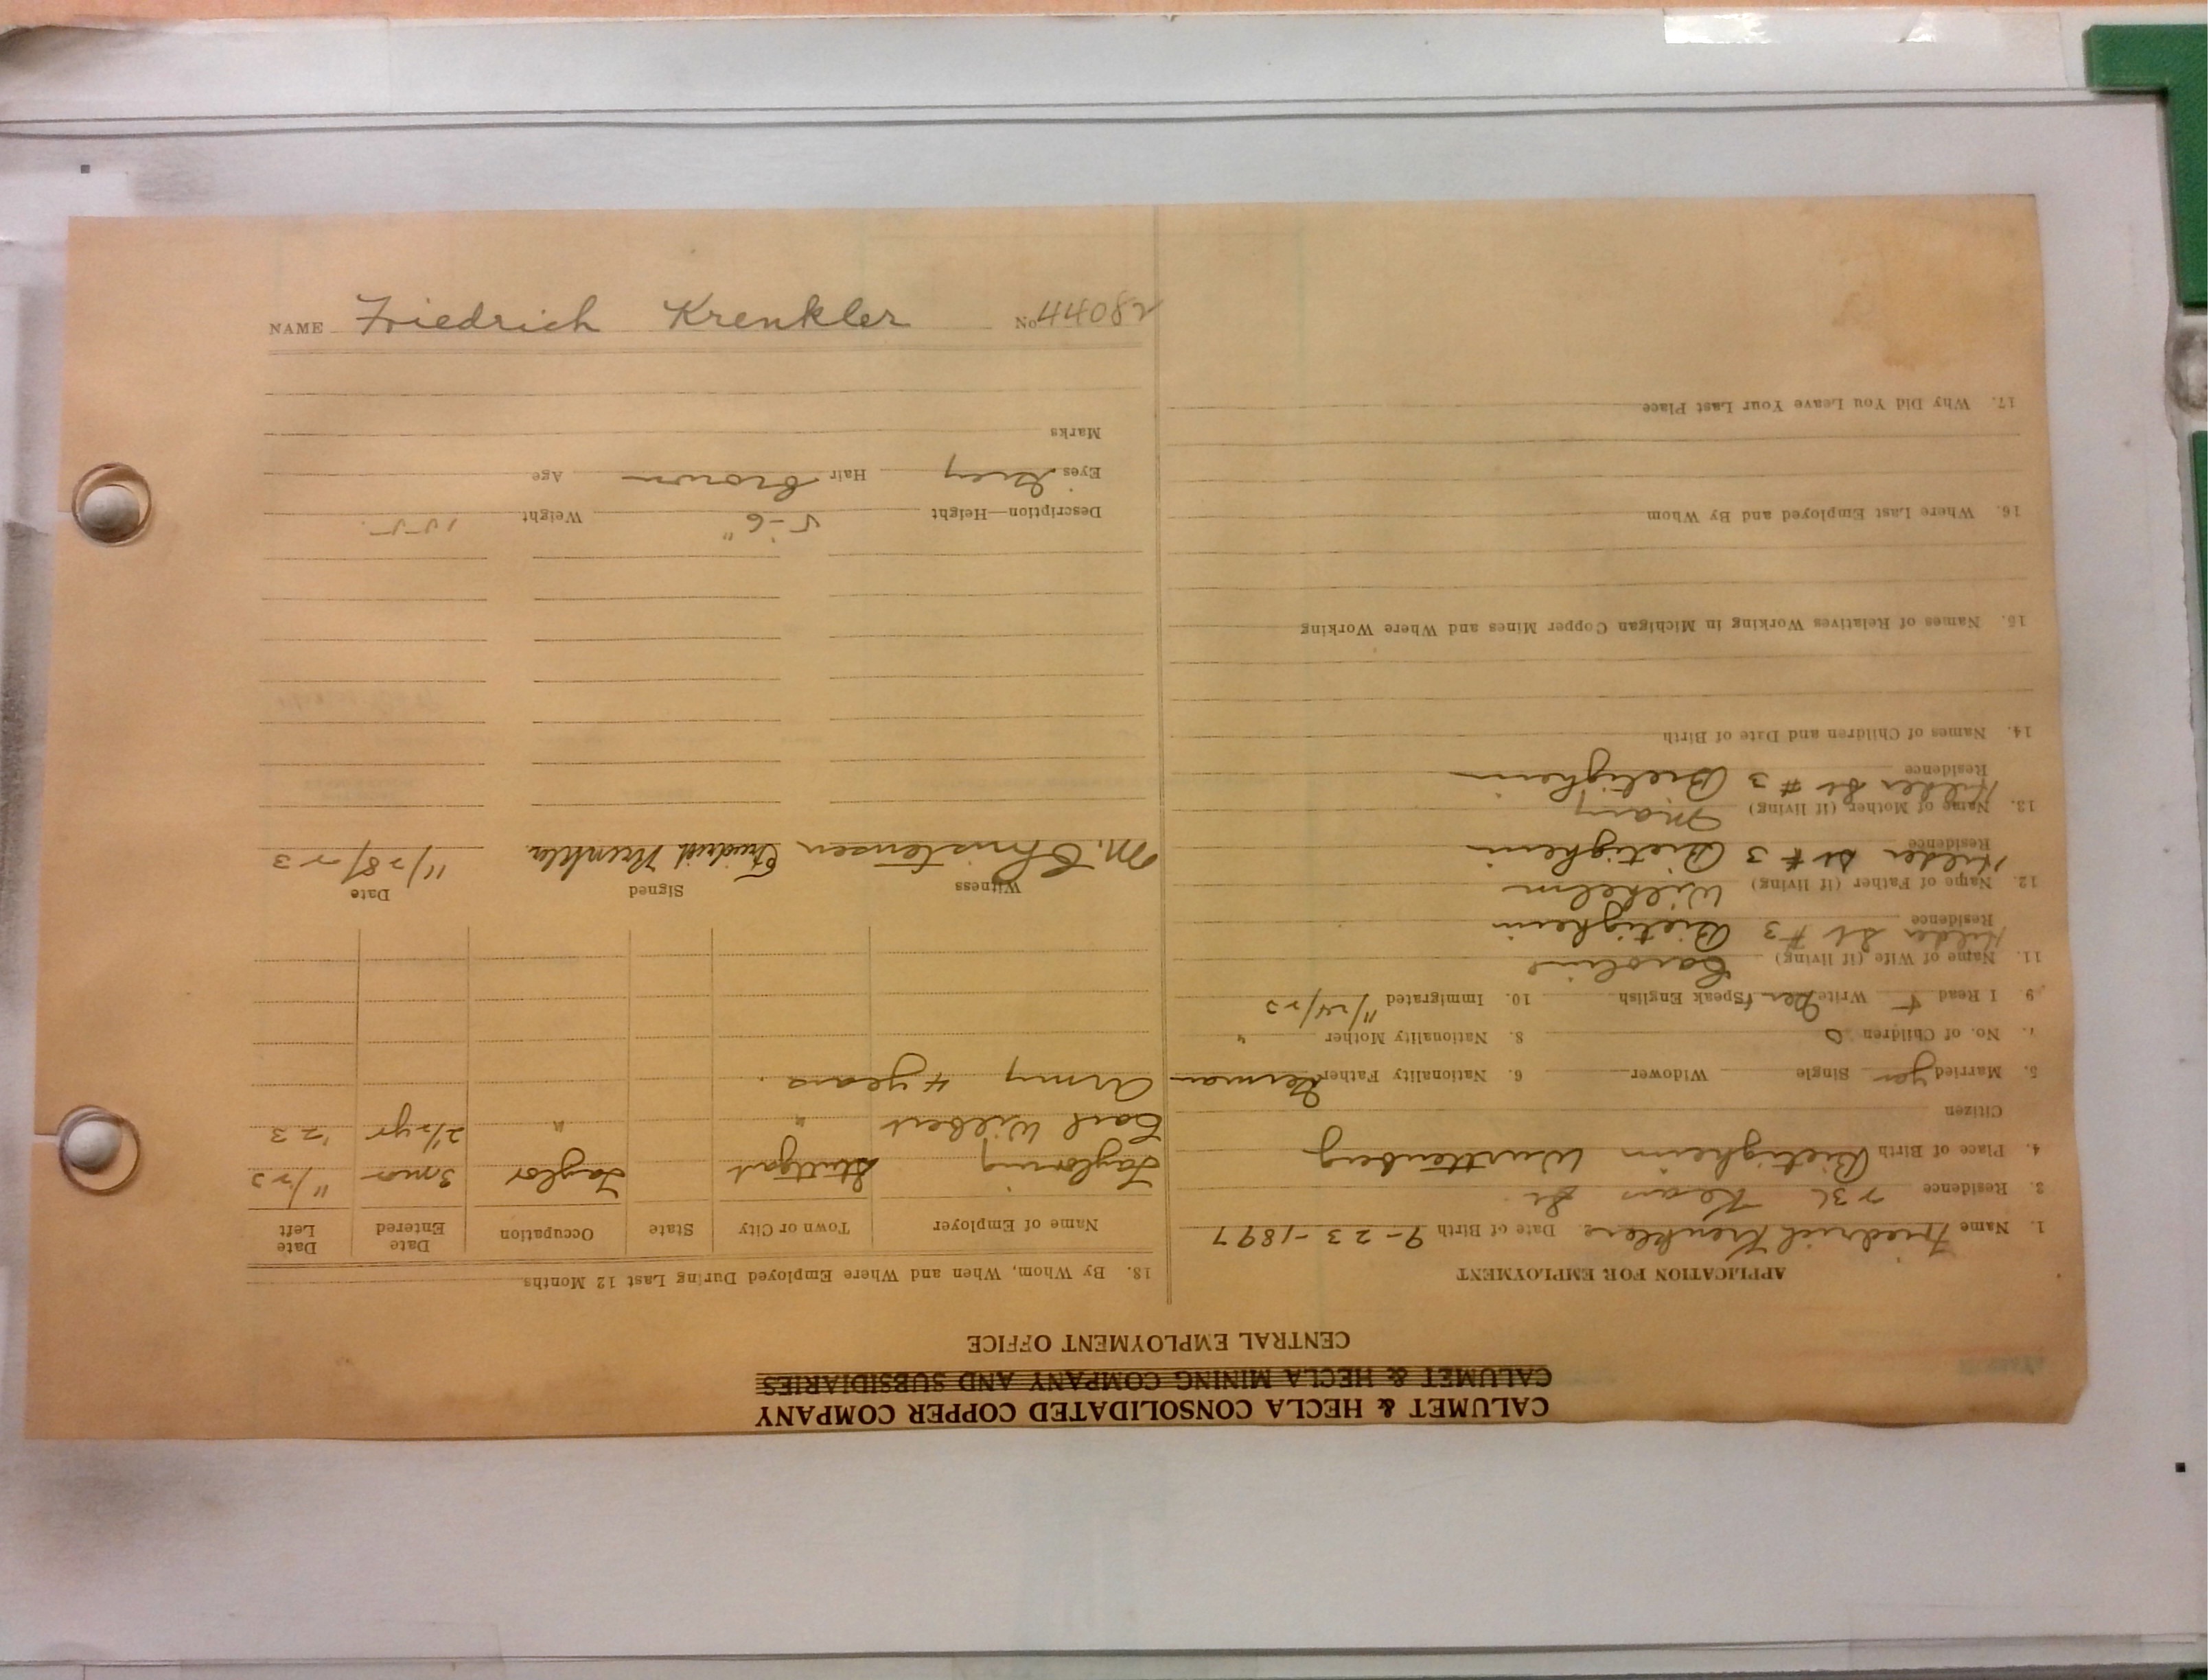 CALUMET & HECLA CONSOLIDATED COPPER COMPANY
CALUMET & HECLA MINING COMPANY AND SUBSIDIARIES
CENTRAL EMPLOYMENT OFFICE
APPLICATION FOR EMPLOYMENT
1. Name Friedrich Krenkler 2. Date of Birth 9-23-1897
3. Residence Kearsarge St
4. Place of Birth Bietigheim Wurttenberg
Citizen
5. Married yes Single Widower 6. Nationality Father German
7. No. of Children 0 8. Nationality Mother "
9. I Read + Write Ger Speak English 10. Immigrated 11/24/23
11. Name of Wife (if living) Caroline
Residence Hilder St #3 Bietigheim
12. Name of Father (if living) Wilhelm
Residence Hilder St #3 Bietigheim
13. Name of Mother (if living) Mary
Residence Hilder St #3 Bietigheim
14. Names of Children and Date of Birth
15. Names of Relatives Working in Michigan Copper Mines and Where Working
16. Where Last Employed and By Whom
17. Why Did You Leave Your Last Place
18. By Whom, When and Where Employed During Last 12 Months
Name of Employer Town or City State Occupation Date Entered Date Left
Tayloring Stuttgart Taylor 3 mos 11/23
Carl Wilbert " " 2½ yr '23
Army 4 years.
Witness Signed Date
M. Christensen Friedrich Krenkler 11/28/23
Description—Height 5'-6" Weight 155
Eyes Grey Hair brown Age
Marks
NAME Friedrich Krenkler No 44082